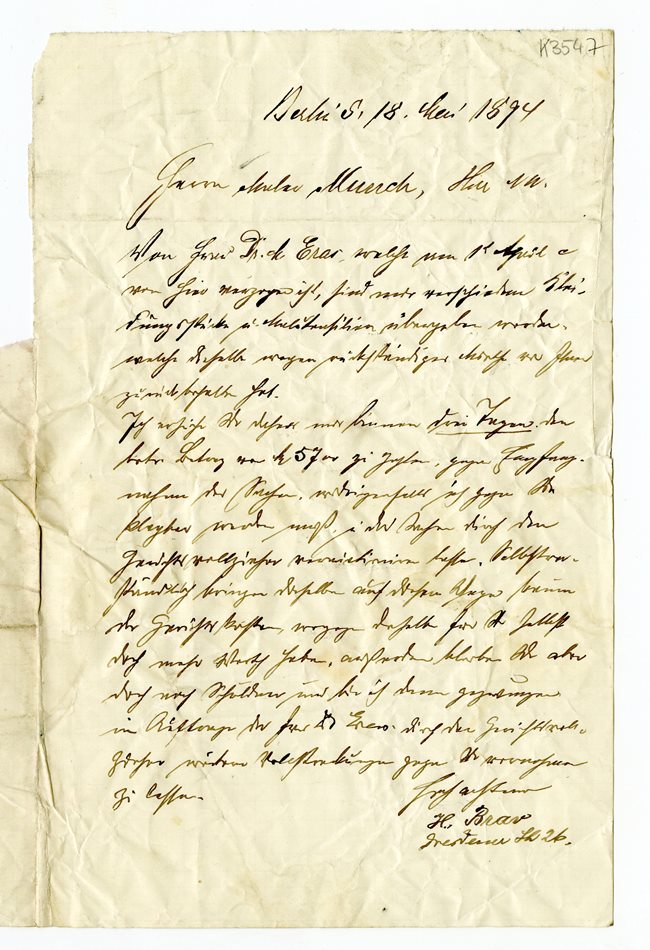 K3547
Berlin S. 18. Mai 1894
Herrn Maler Munch, Hier
Von Frau Dr. Eras, welche am 1t April c
von hier verzogen ist, sind mir verschiedene Klei-
dungsstücke u. Malutensilien übergeben worden,
welche dieselbe wegen rückständiger Miethe von Ihnen
zurückbehalten hat.
Ich ersuche Sie daher mir binnen drei Tagen den
Betrag von M 57 zu zahlen, gegen Empfang-
nahme der Sachen, widrigenfalls ich gegen Sie
klagbar werden muß, u. die Sachen durch den
Gerichtsvollzieher lasse. Selbstver-
ständlich bringen dieselben auf diesem Wege kaum
die Gerichtskosten, wogegen dieselben für Sie selbst
doch mehr Werth haben, außerdem bleiben Sie aber
doch noch Schuldner und bin ich dann gezwungen
im Auftrage der Frau Dr Eras durch den Gerichtsvoll-
zieher weitere Vollstreckungen gegen Sie vornehmen
zu lassen.
Hochachtend
H. Brav
Dresdener Str 26.